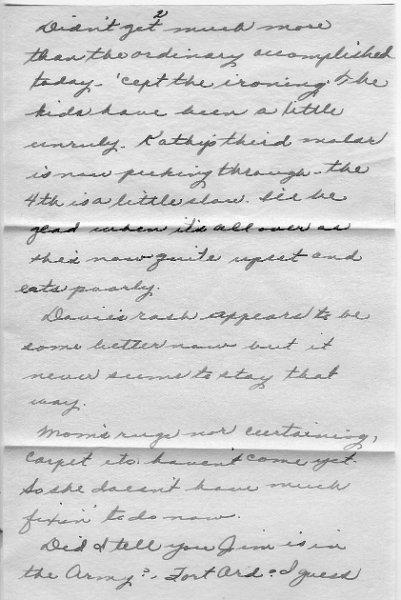 2
Didn't get much more
than the ordinary accomplished
today - 'cept the ironing. The
kids have been a little
unruly. Kathy's third molar
is now peeking through - the
4th is a little slow. I'll be
glad when it's all over as
she's now quite upset and
eats poorly.
Davie's rash appears to be
some better now but it
never seems to stay that
way.
Mom's rugs nor curtaining,
carpet etc. haven't come yet.
So she doesn't have much
fixin' to do now.
Did I tell you Jim is in
the Army? - Fort Ord - I guess